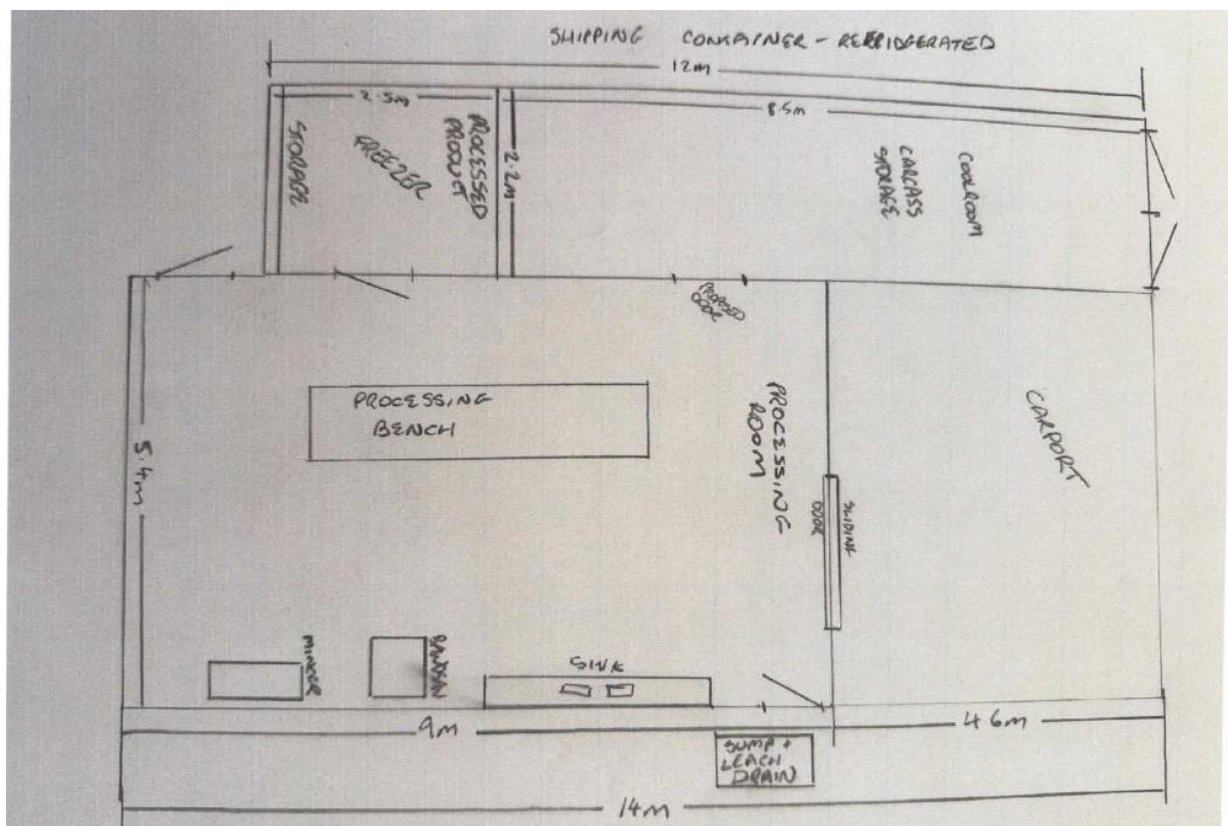 SHIPPING CONTAINER - REFRIDGERATED
12m
2.5m
8.5m
STORAGE
FREEZER
PROCESSED
PRODUCT
2.2m
CARCASS
STORAGE
COOLROOM
PROPOSED
DOOR
PROCESSING
BENCH
PROCESSING
ROOM
CARPORT
5.4m
SLIDING
DOOR
MINCER
BANDSAW
SINK
9m
4.6m
SUMP +
LEACH
DRAIN
14m